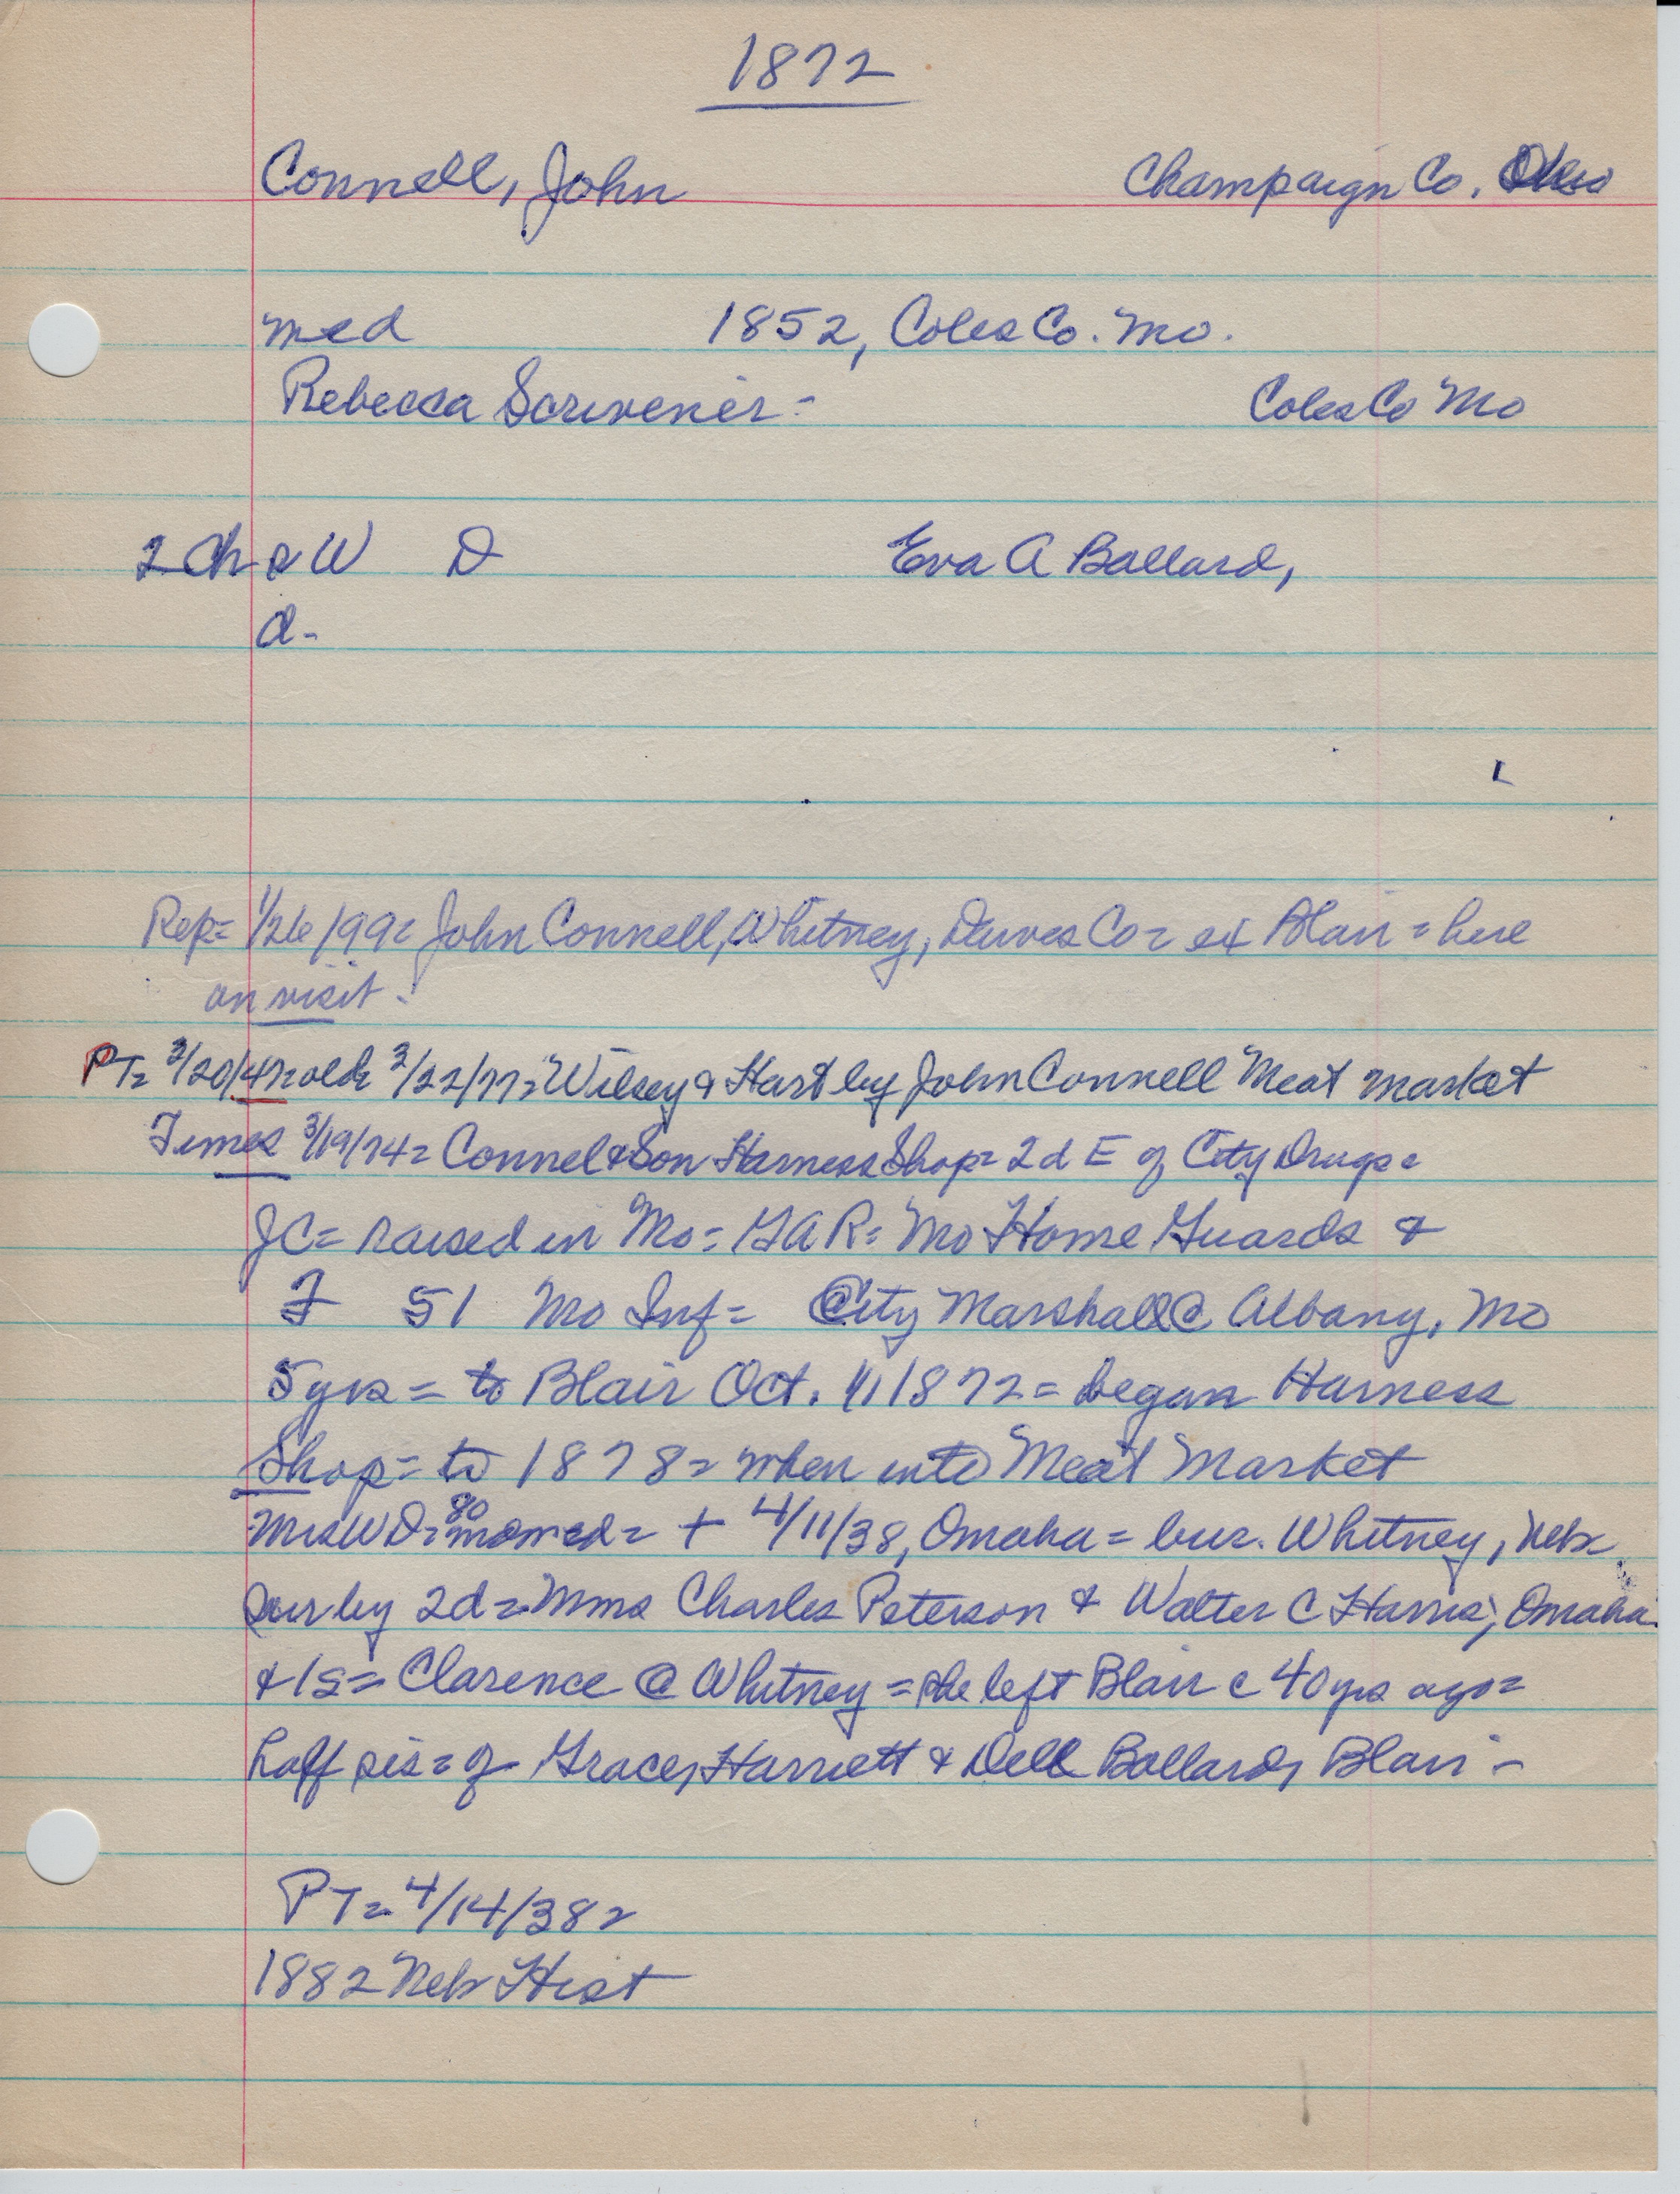 1872
Connell, John Champaign Co. Ohio
med 1852, Coles Co. Mo.
Rebecca Scrivener - Coles Co Mo
2 Ch = W D Eva A Ballard,
d -
Rep = 1/26/99 = John Connell, Whitney, Dawes Co = ex Blair = here
on visit.
PT = 3/20/47 = old = 3/22/77 = Wilsey & Hart by John Connell Meat Market
Times 3/19/74 = Connel & Son Harness Shop = 2d E of City Drugs =
JC = raised in Mo = GAR = Mo Home Guards &
F 51 Mo Inf = City Marshall @ Albany, Mo
5 yrs = to Blair Oct. 1, 1872 = began Harness
Shop = to 1878 = when into Meat Market
Mrs W D = 80 = + 4/11/38, Omaha = bur. Whitney, Nebr.
sur by 2d = Mms Charles Peterson & Walter C Harris, Omaha
+ 1s = Clarence @ Whitney = she left Blair c 40 yrs ago =
half sis = of Grace, Harriett & Dell Ballard, Blair -
PT = 4/14/38 =
1882 Neb Hist